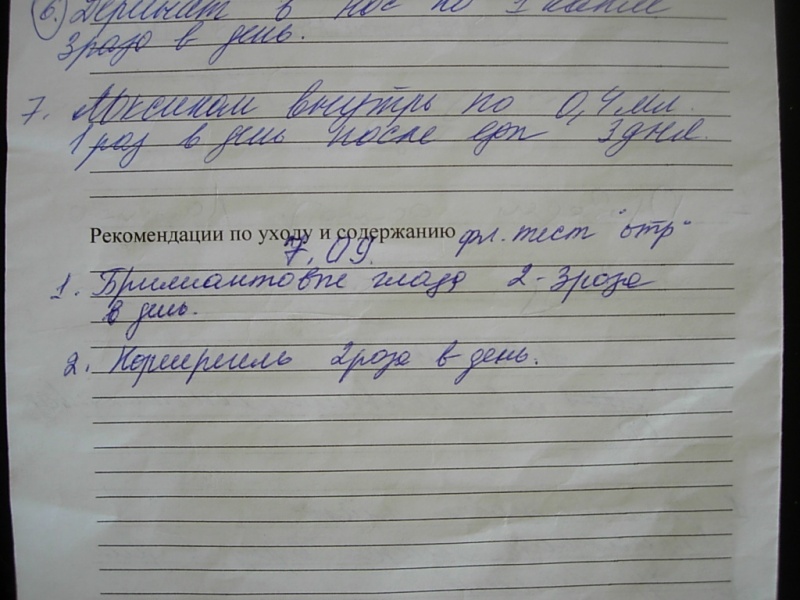 6. Деринат в нос по 1 капле
3 раза в день.
7. Локсиком внутрь по 0,4 мл.
1 раз в день после еды 3 дня.
Рекомендации по уходу и содержанию фл. тест "отр"
7.09.
1. Бриллиантовые глаза 2-3 раза
в день.
2. Корнерегель 2 раза в день.